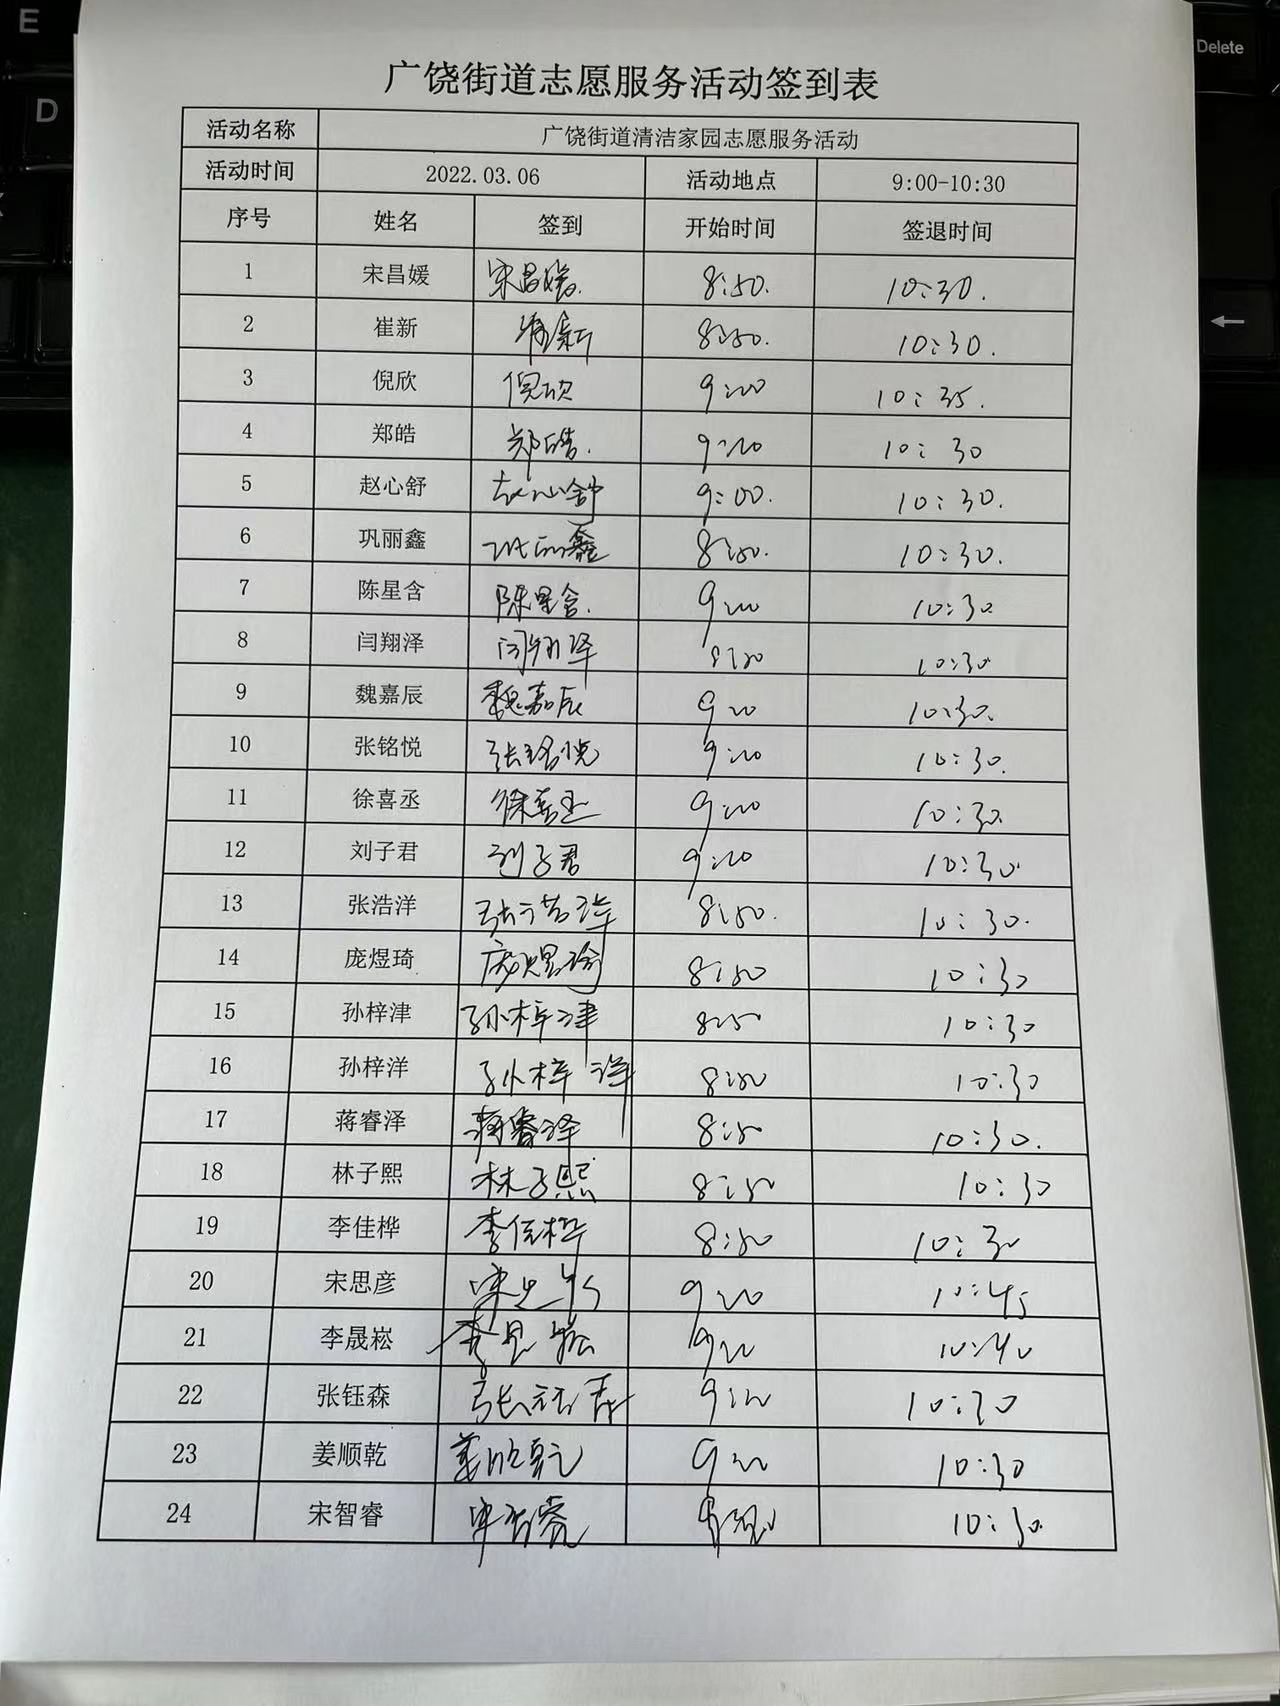 广饶街道志愿服务活动签到表
活动名称 广饶街道清洁家园志愿服务活动
活动时间 2022.03.06 活动地点 9:00-10:30
序号 姓名 签到 开始时间 签退时间
1 宋昌媛 宋昌媛. 8:50. 10:30.
2 崔新 崔新 8:50. 10:30.
3 倪欣 倪欣 9:00 10:35.
4 郑皓 郑皓. 9:00 10:30
5 赵心舒 赵心舒 9:00. 10:30.
6 巩丽鑫 巩丽鑫 8:50. 10:30.
7 陈星含 陈星含. 9:00 10:30
8 闫翔泽 闫翔泽 8:50 10:30
9 魏嘉辰 魏嘉辰 9:00 10:30.
10 张铭悦 张铭悦 9:00 10:30.
11 徐喜丞 徐喜丞 9:00 10:30
12 刘子君 刘子君 9:00 10:30
13 张浩洋 张浩洋 8:50. 10:30.
14 庞煜琦 庞煜琦 8:50 10:30
15 孙梓津 孙梓津 8:50 10:30
16 孙梓洋 孙梓洋 8:50 10:30
17 蒋睿泽 蒋睿泽 8:50 10:30.
18 林子熙 林子熙 8:50 10:30
19 李佳桦 李佳桦 8:50 10:30
20 宋思彦 宋思彦 9:00 10:45
21 李晟崧 李晟崧 9:00 10:40
22 张钰森 张钰森 9:00 10:30
23 姜顺乾 姜顺乾 9:00 10:30
24 宋智睿 宋智睿 10:30.
E
D
Delete
←